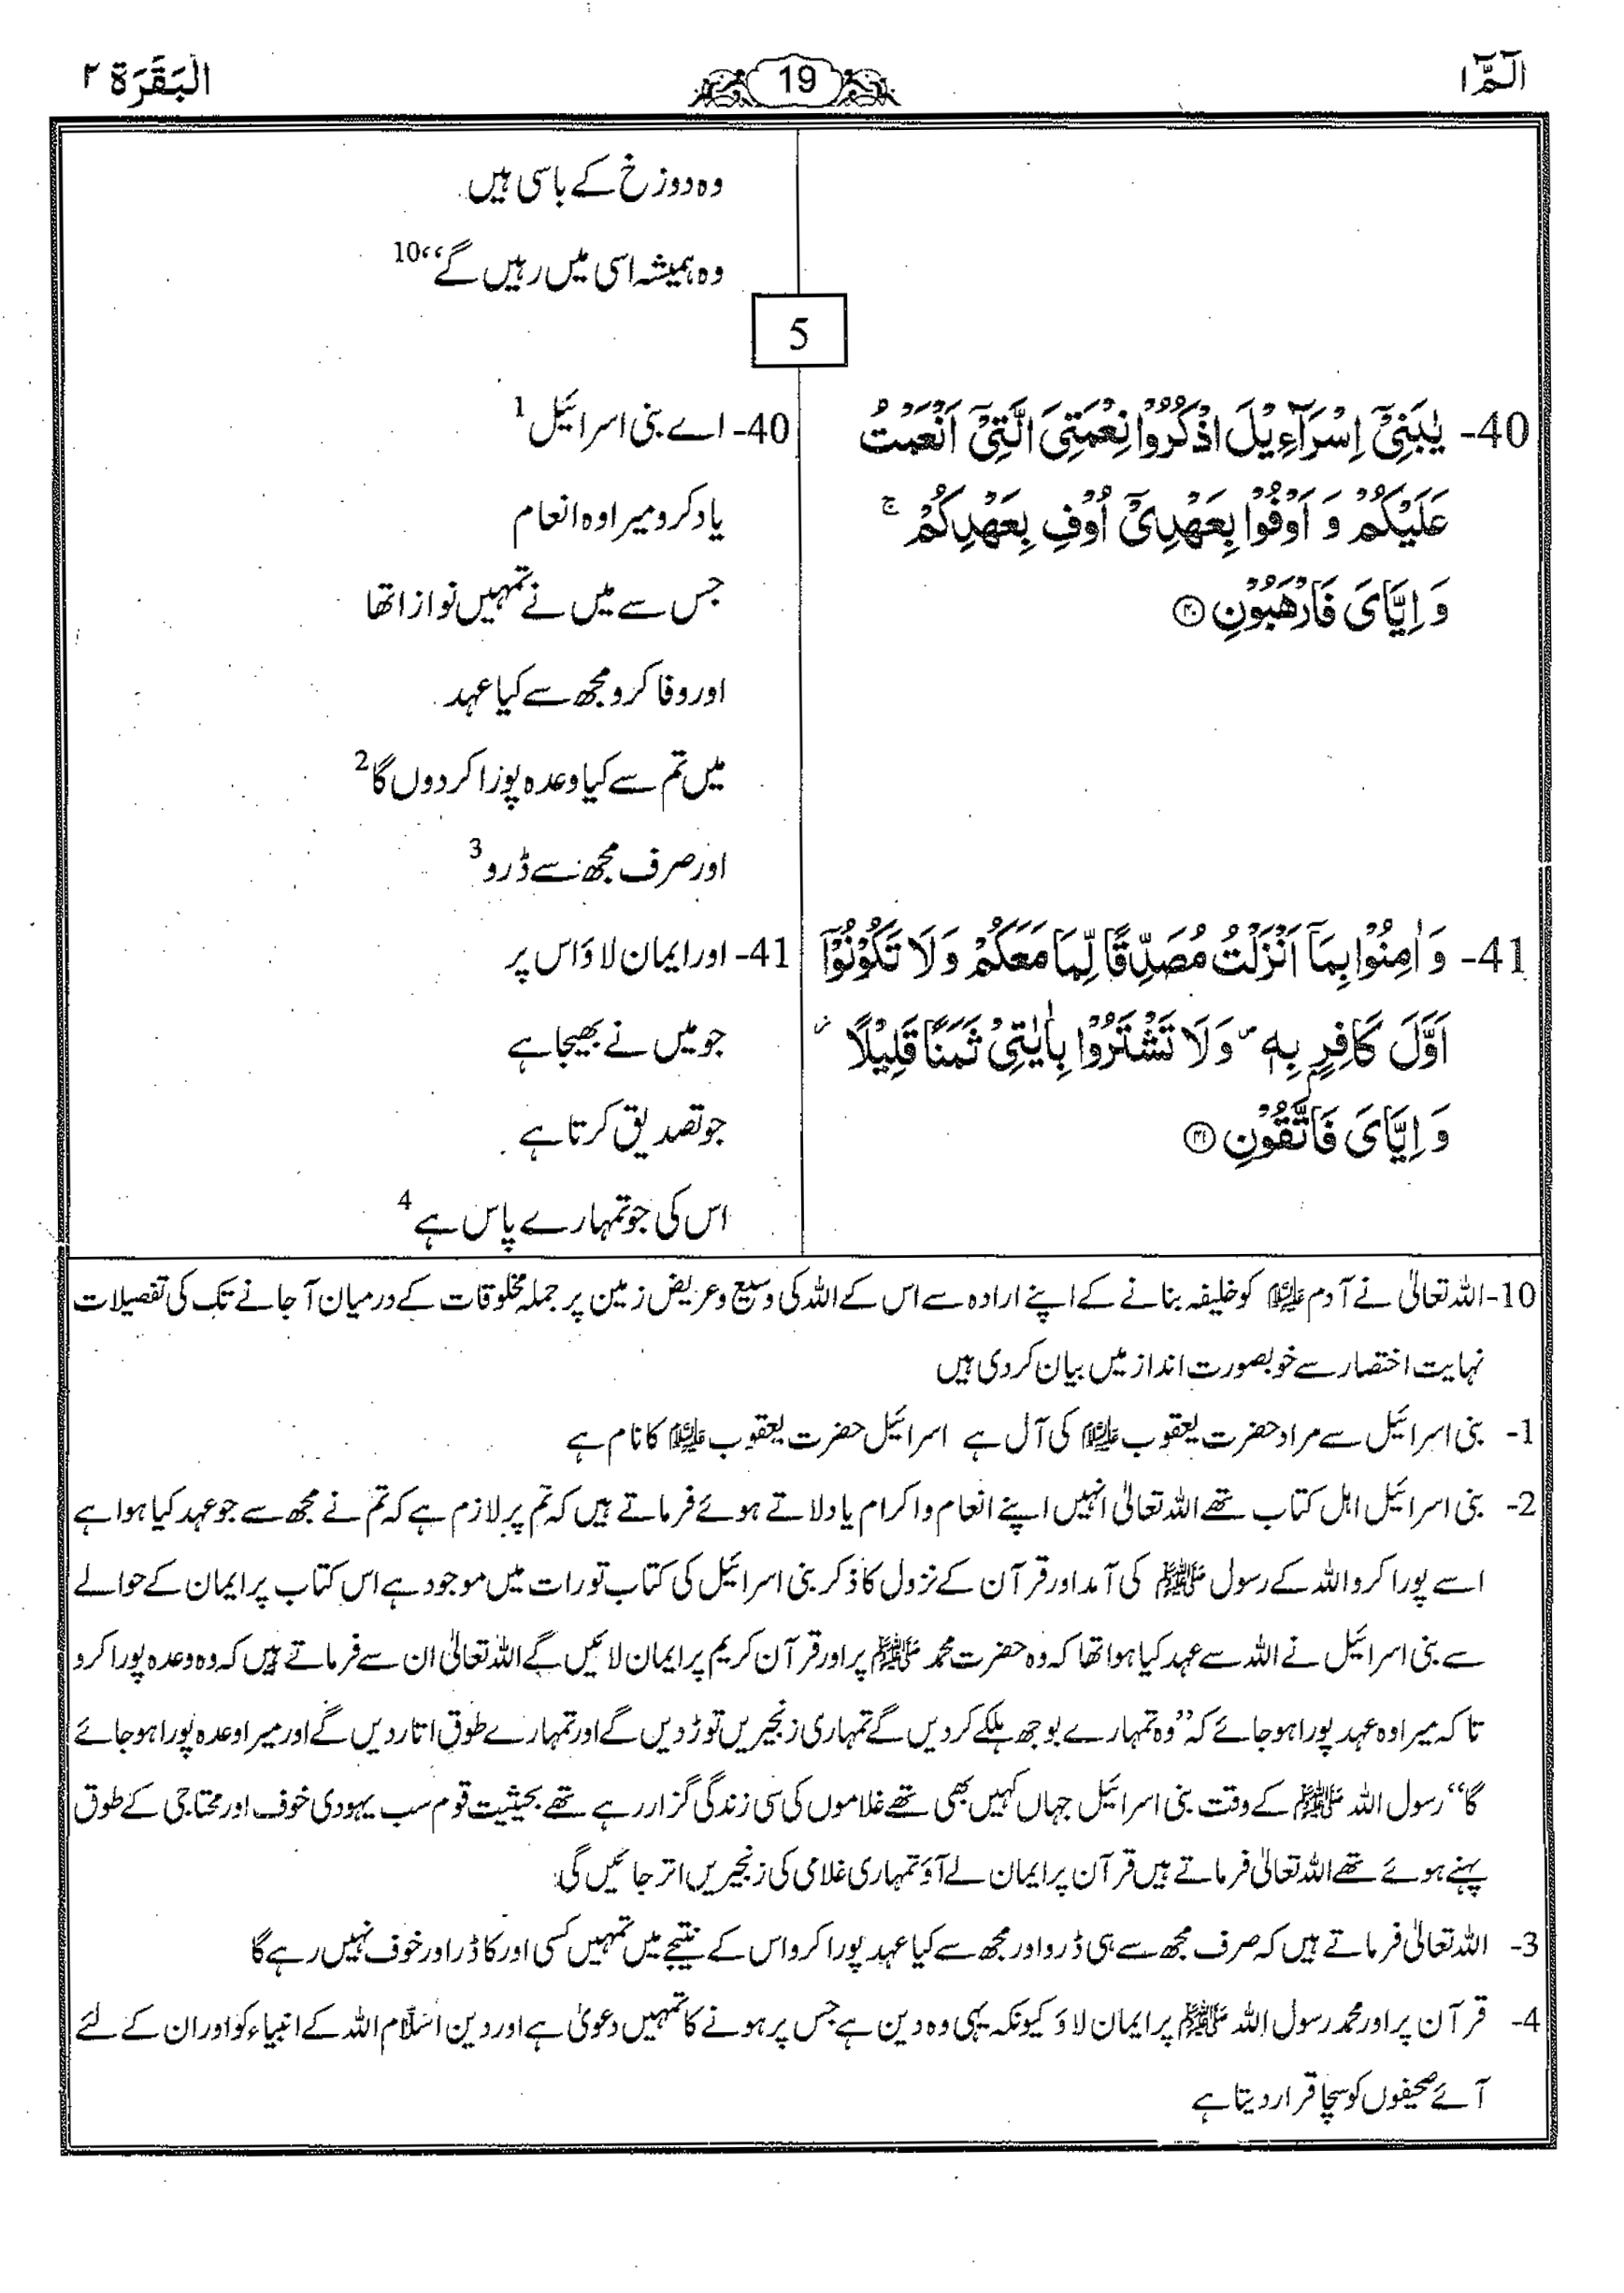 الٓمّٓ ۱
19
الْبَقَرَة ۲
وہ دوزخ کے باسی ہیں
وہ ہمیشہ اسی میں رہیں گے‘‘10
5
40- يٰبَنِيْٓ اِسْرَآءِيْلَ اذْكُرُوْا نِعْمَتِيَ الَّتِيْٓ اَنْعَمْتُ
عَلَيْكُمْ وَ اَوْفُوْا بِعَهْدِيْٓ اُوْفِ بِعَهْدِكُمْ ۚ
وَ اِيَّايَ فَارْهَبُوْنِ ۴۰
40- اے بنی اسرائیل 1
یاد کرو میرا وہ انعام
جس سے میں نے تمہیں نوازا تھا
اور وفا کرو مجھ سے کیا عہد
میں تم سے کیا وعدہ پورا کردوں گا 2
اور صرف مجھ سے ڈرو 3
41- وَ اٰمِنُوْا بِمَآ اَنْزَلْتُ مُصَدِّقًا لِّمَا مَعَكُمْ وَلَا تَكُوْنُوْٓا
اَوَّلَ كَافِرٍ بِهٖ ۪ وَلَا تَشْتَرُوْا بِاٰيٰتِيْ ثَمَنًا قَلِيْلًا ۡ
وَ اِيَّايَ فَاتَّقُوْنِ ۴۱
41- اور ایمان لاؤ اس پر
جو میں نے بھیجا ہے
جو تصدیق کرتا ہے
اس کی جو تمہارے پاس ہے 4
10- اللہ تعالیٰ نے آدم علیہ السلام کو خلیفہ بنانے کے اپنے ارادہ سے اس کے اللہ کی وسیع و عریض زمین پر جملہ مخلوقات کے درمیان آ جانے تک کی تفصیلات
نہایت اختصار سے خوبصورت انداز میں بیان کر دی ہیں
1- بنی اسرائیل سے مراد حضرت یعقوب علیہ السلام کی آل ہے اسرائیل حضرت یعقوب علیہ السلام کا نام ہے
2- بنی اسرائیل اہل کتاب تھے اللہ تعالیٰ انہیں اپنے انعام و اکرام یاد دلاتے ہوئے فرماتے ہیں کہ تم پر لازم ہے کہ تم نے مجھ سے جو عہد کیا ہوا ہے
اسے پورا کرو اللہ کے رسول ﷺ کی آمد اور قرآن کے نزول کا ذکر بنی اسرائیل کی کتاب تورات میں موجود ہے اس کتاب پر ایمان کے حوالے
سے بنی اسرائیل نے اللہ سے عہد کیا ہوا تھا کہ وہ حضرت محمد ﷺ پر اور قرآن کریم پر ایمان لائیں گے اللہ تعالیٰ ان سے فرماتے ہیں کہ وہ وعدہ پورا کرو
تا کہ میرا وہ عہد پورا ہو جائے کہ ’’وہ تمہارے بوجھ ہلکے کر دیں گے تمہاری زنجیریں توڑ دیں گے اور تمہارے طوق اتار دیں گے اور میرا وعدہ پورا ہو جائے
گا‘‘ رسول اللہ ﷺ کے وقت بنی اسرائیل جہاں کہیں بھی تھے غلاموں کی سی زندگی گزار رہے تھے بحیثیت قوم سب یہودی خوف اور محتاجی کے طوق
پہنے ہوئے تھے اللہ تعالیٰ فرماتے ہیں قرآن پر ایمان لے آؤ تمہاری غلامی کی زنجیریں اتر جائیں گی
3- اللہ تعالیٰ فرماتے ہیں کہ صرف مجھ سے ہی ڈرو اور مجھ سے کیا عہد پورا کرو اس کے نتیجے میں تمہیں کسی اور کا ڈر اور خوف نہیں رہے گا
4- قرآن پر اور محمد رسول اللہ ﷺ پر ایمان لاؤ کیونکہ یہی وہ دین ہے جس پر ہونے کا تمہیں دعویٰ ہے اور دین اسلام اللہ کے انبیاء کو اور ان کے لئے
آئے صحیفوں کو سچا قرار دیتا ہے